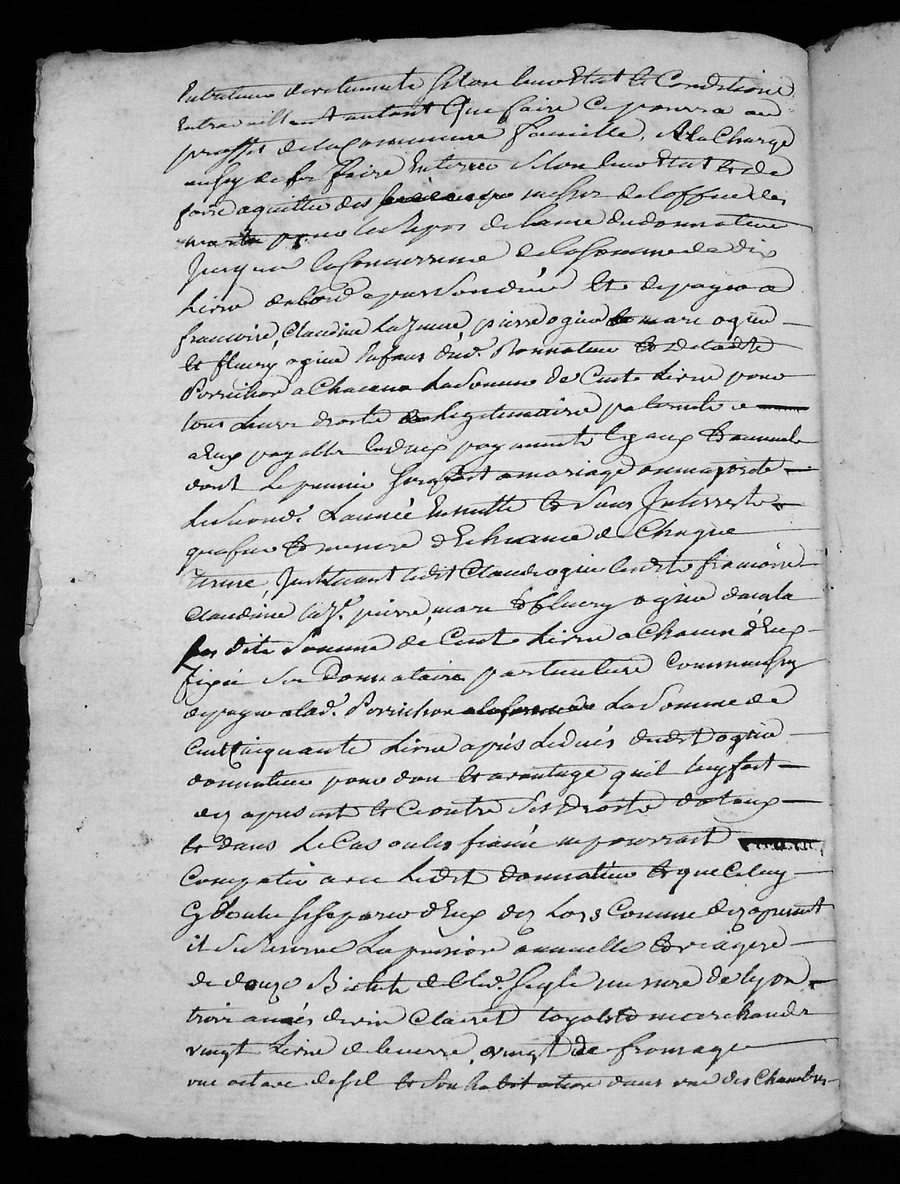 Entretenir et vetements selon leur Etat et Condition
En travaillant autant que faire ce pourra au
proffit de la Commune famille, A la Charge
aussy de se faire Enterrer selon leur Etat et de
faire aquitter des messes de l'office des
morts pour le Repos de l'ame du donnateur
Jusques la Concurrence de la somme de dix
Livre dabord apres son décé et de payer a
francoise, Claudine La Jeune, pierre ogier marc ogier
et fleury ogier Enfans dud. Donnateur et de ladte
Porrichon a Chacun La Somme de Cent Livre pour
tous Leurs droits Legitimaire paternels
a Eux payable En deux payements Egaux et annuels
dont Le premier sera fait a mariage ou majorité
Le second. L'année Ensuitte et sans Interrest
que sur et mesure d'Echeance de Chaque
terme, Instituant ledit Claude ogier lesdts francoise
Claudine la Je. pierre, marc et fleury ogier dans la
susdite Somme de Cent Livre a Chacun d'Eux
fixée ses Donnataire particuliers Comme aussy
de payer a lad. Porrichon La Somme de
Cent Cinquante Livre après Le décés dudit ogier
donnateur pour don et avantage qu'il luy fait
des apresent et Ce outre ses Droits dotaux
et dans Le Cas ou les fiancé ne pourront
Compatir avec Ledit donnateur et que Celuy
Cy voulu se separer d'Eux dez Lors Comme dez apresent
il se Reserve La pension annuelle et viagere
de douze Bichets de bled. seigle mesure de lyon
trois anées de vin Clairet Loyal et marchands
vingt Livre de beurre, vingt de fromage
une octave de sel et son habitation dans une des Chambres